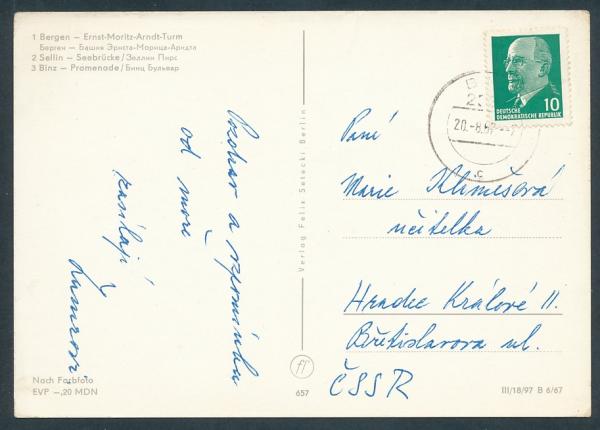 1 Bergen – Ernst-Moritz-Arndt-Turm
Берген – Башня Эрнста-Морица-Арндта
2 Sellin – Seebrücke/Зеллин Пирс
3 Binz – Promenade/Бинц Бульвар
Pozdrav a vzpomínku
od moře
zasílají
Nach Farbfoto
EVP –,20 MDN
Verlag Felix Setecki Berlin
657
10
DEUTSCHE
DEMOKRATISCHE REPUBLIK
20.-8.67
c
Paní
Marie Klimešová
učitelka
Hradec Králové II.
Břetislavova ul.
ČSSR
III/18/97 B 6/67